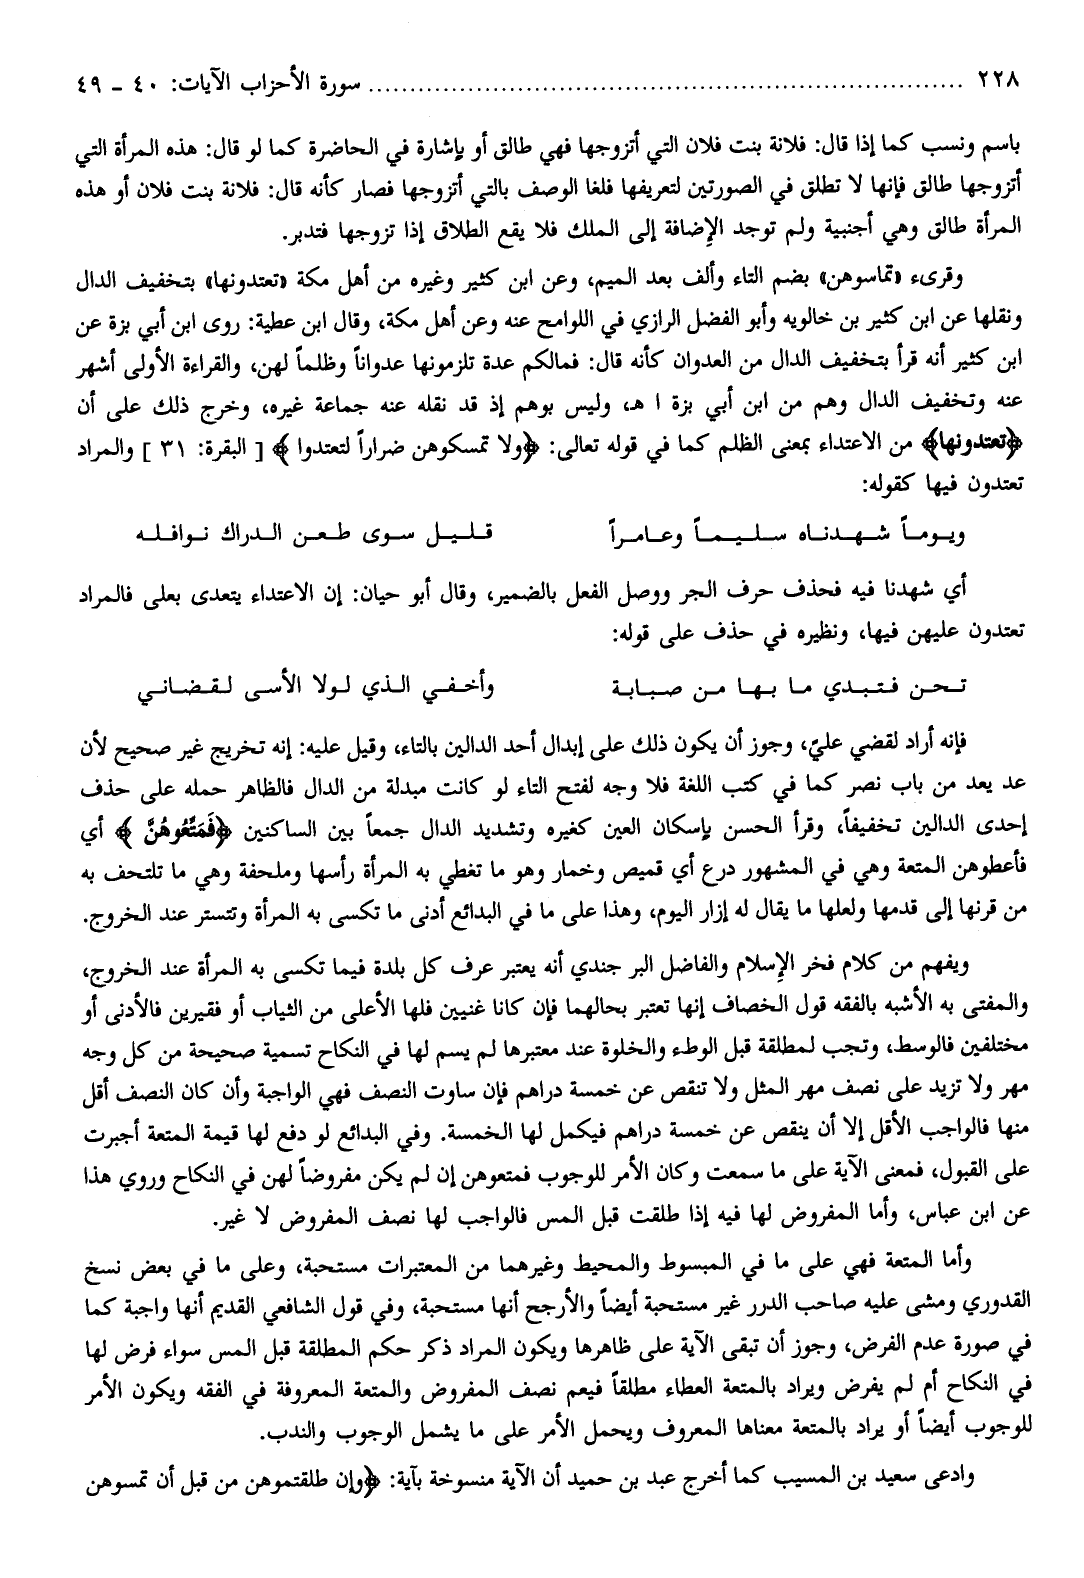 ٢٢٨ ........................................................................ سورة الأحزاب الآيات: ٤٠ - ٤٩
باسم ونسب كما إذا قال: فلانة بنت فلان التي أتزوجها فهي طالق أو بإشارة في الحاضرة كما لو قال: هذه المرأة التي
أتزوجها طالق فإنها لا تطلق في الصورتين لتعريفها فلغا الوصف بالتي أتزوجها فصار كأنه قال: فلانة بنت فلان أو هذه
المرأة طالق وهي أجنبية ولم توجد الإضافة إلى الملك فلا يقع الطلاق إذا تزوجها فتدبر.
وقرىء «تماسوهن» بضم التاء وألف بعد الميم، وعن ابن كثير وغيره من أهل مكة «تعتدونها» بتخفيف الدال
ونقلها عن ابن كثير بن خالويه وأبو الفضل الرازي في اللوامح عنه وعن أهل مكة، وقال ابن عطية: روى ابن أبي بزة عن
ابن كثير أنه قرأ بتخفيف الدال من العدوان كأنه قال: فمالكم عدة تلزمونها عدواناً وظلماً لهن، والقراءة الأولى أشهر
عنه وتخفيف الدال وهم من ابن أبي بزة ا هـ، وليس بوهم إذ قد نقله عنه جماعة غيره، وخرج ذلك على أن
﴿تعتدونها﴾ من الاعتداء بمعنى الظلم كما في قوله تعالى: ﴿ولا تمسكوهن ضراراً لتعتدوا﴾ [ البقرة: ٣١ ] والمراد
تعتدون فيها كقوله:
ويوماً شهدناه سليماً وعامراً قليل سوى طعن الدراك نوافله
أي شهدنا فيه فحذف حرف الجر ووصل الفعل بالضمير، وقال أبو حيان: إن الاعتداء يتعدى بعلى فالمراد
تعتدون عليهن فيها، ونظيره في حذف على قوله:
تحن فتبدي ما بها من صبابة وأخفي الذي لولا الأسى لقضاني
فإنه أراد لقضي عليّ، وجوز أن يكون ذلك على إبدال أحد الدالين بالتاء، وقيل عليه: إنه تخريج غير صحيح لأن
عد يعد من باب نصر كما في كتب اللغة فلا وجه لفتح التاء لو كانت مبدلة من الدال فالظاهر حمله على حذف
إحدى الدالين تخفيفاً، وقرأ الحسن بإسكان العين كغيره وتشديد الدال جمعاً بين الساكنين ﴿فَمَتِّعُوهُنَّ﴾ أي
فأعطوهن المتعة وهي في المشهور درع أي قميص وخمار وهو ما تغطي به المرأة رأسها وملحفة وهي ما تلتحف به
من قرنها إلى قدمها ولعلها ما يقال له إزار اليوم، وهذا على ما في البدائع أدنى ما تكسى به المرأة وتتستر عند الخروج.
ويفهم من كلام فخر الإسلام والفاضل البر جندي أنه يعتبر عرف كل بلدة فيما تكسى به المرأة عند الخروج،
والمفتى به الأشبه بالفقه قول الخصاف إنها تعتبر بحالهما فإن كانا غنيين فلها الأعلى من الثياب أو فقيرين فالأدنى أو
مختلفين فالوسط، وتجب لمطلقة قبل الوطء والخلوة عند معتبرها لم يسم لها في النكاح تسمية صحيحة من كل وجه
مهر ولا تزيد على نصف مهر المثل ولا تنقص عن خمسة دراهم فإن ساوت النصف فهي الواجبة وأن كان النصف أقل
منها فالواجب الأقل إلا أن ينقص عن خمسة دراهم فيكمل لها الخمسة. وفي البدائع لو دفع لها قيمة المتعة أجبرت
على القبول، فمعنى الآية على ما سمعت وكان الأمر للوجوب فمتعوهن إن لم يكن مفروضاً لهن في النكاح وروي هذا
عن ابن عباس، وأما المفروض لها فيه إذا طلقت قبل المس فالواجب لها نصف المفروض لا غير.
وأما المتعة فهي على ما في المبسوط والمحيط وغيرهما من المعتبرات مستحبة، وعلى ما في بعض نسخ
القدوري ومشى عليه صاحب الدرر غير مستحبة أيضاً والأرجح أنها مستحبة، وفي قول الشافعي القديم أنها واجبة كما
في صورة عدم الفرض، وجوز أن تبقى الآية على ظاهرها ويكون المراد ذكر حكم المطلقة قبل المس سواء فرض لها
في النكاح أم لم يفرض ويراد بالمتعة العطاء مطلقاً فيعم نصف المفروض والمتعة المعروفة في الفقه ويكون الأمر
للوجوب أيضاً أو يراد بالمتعة معناها المعروف ويحمل الأمر على ما يشمل الوجوب والندب.
وادعى سعيد بن المسيب كما أخرج عبد بن حميد أن الآية منسوخة بآية: ﴿وإن طلقتموهن من قبل أن تمسوهن